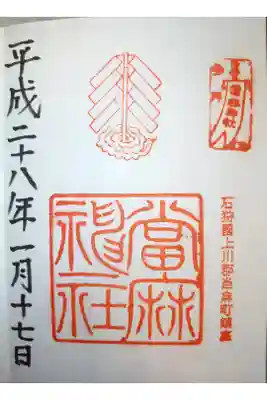 當麻神社
石狩國上川郡當麻町鎮座
當麻
神社
平成二十八年一月十七日